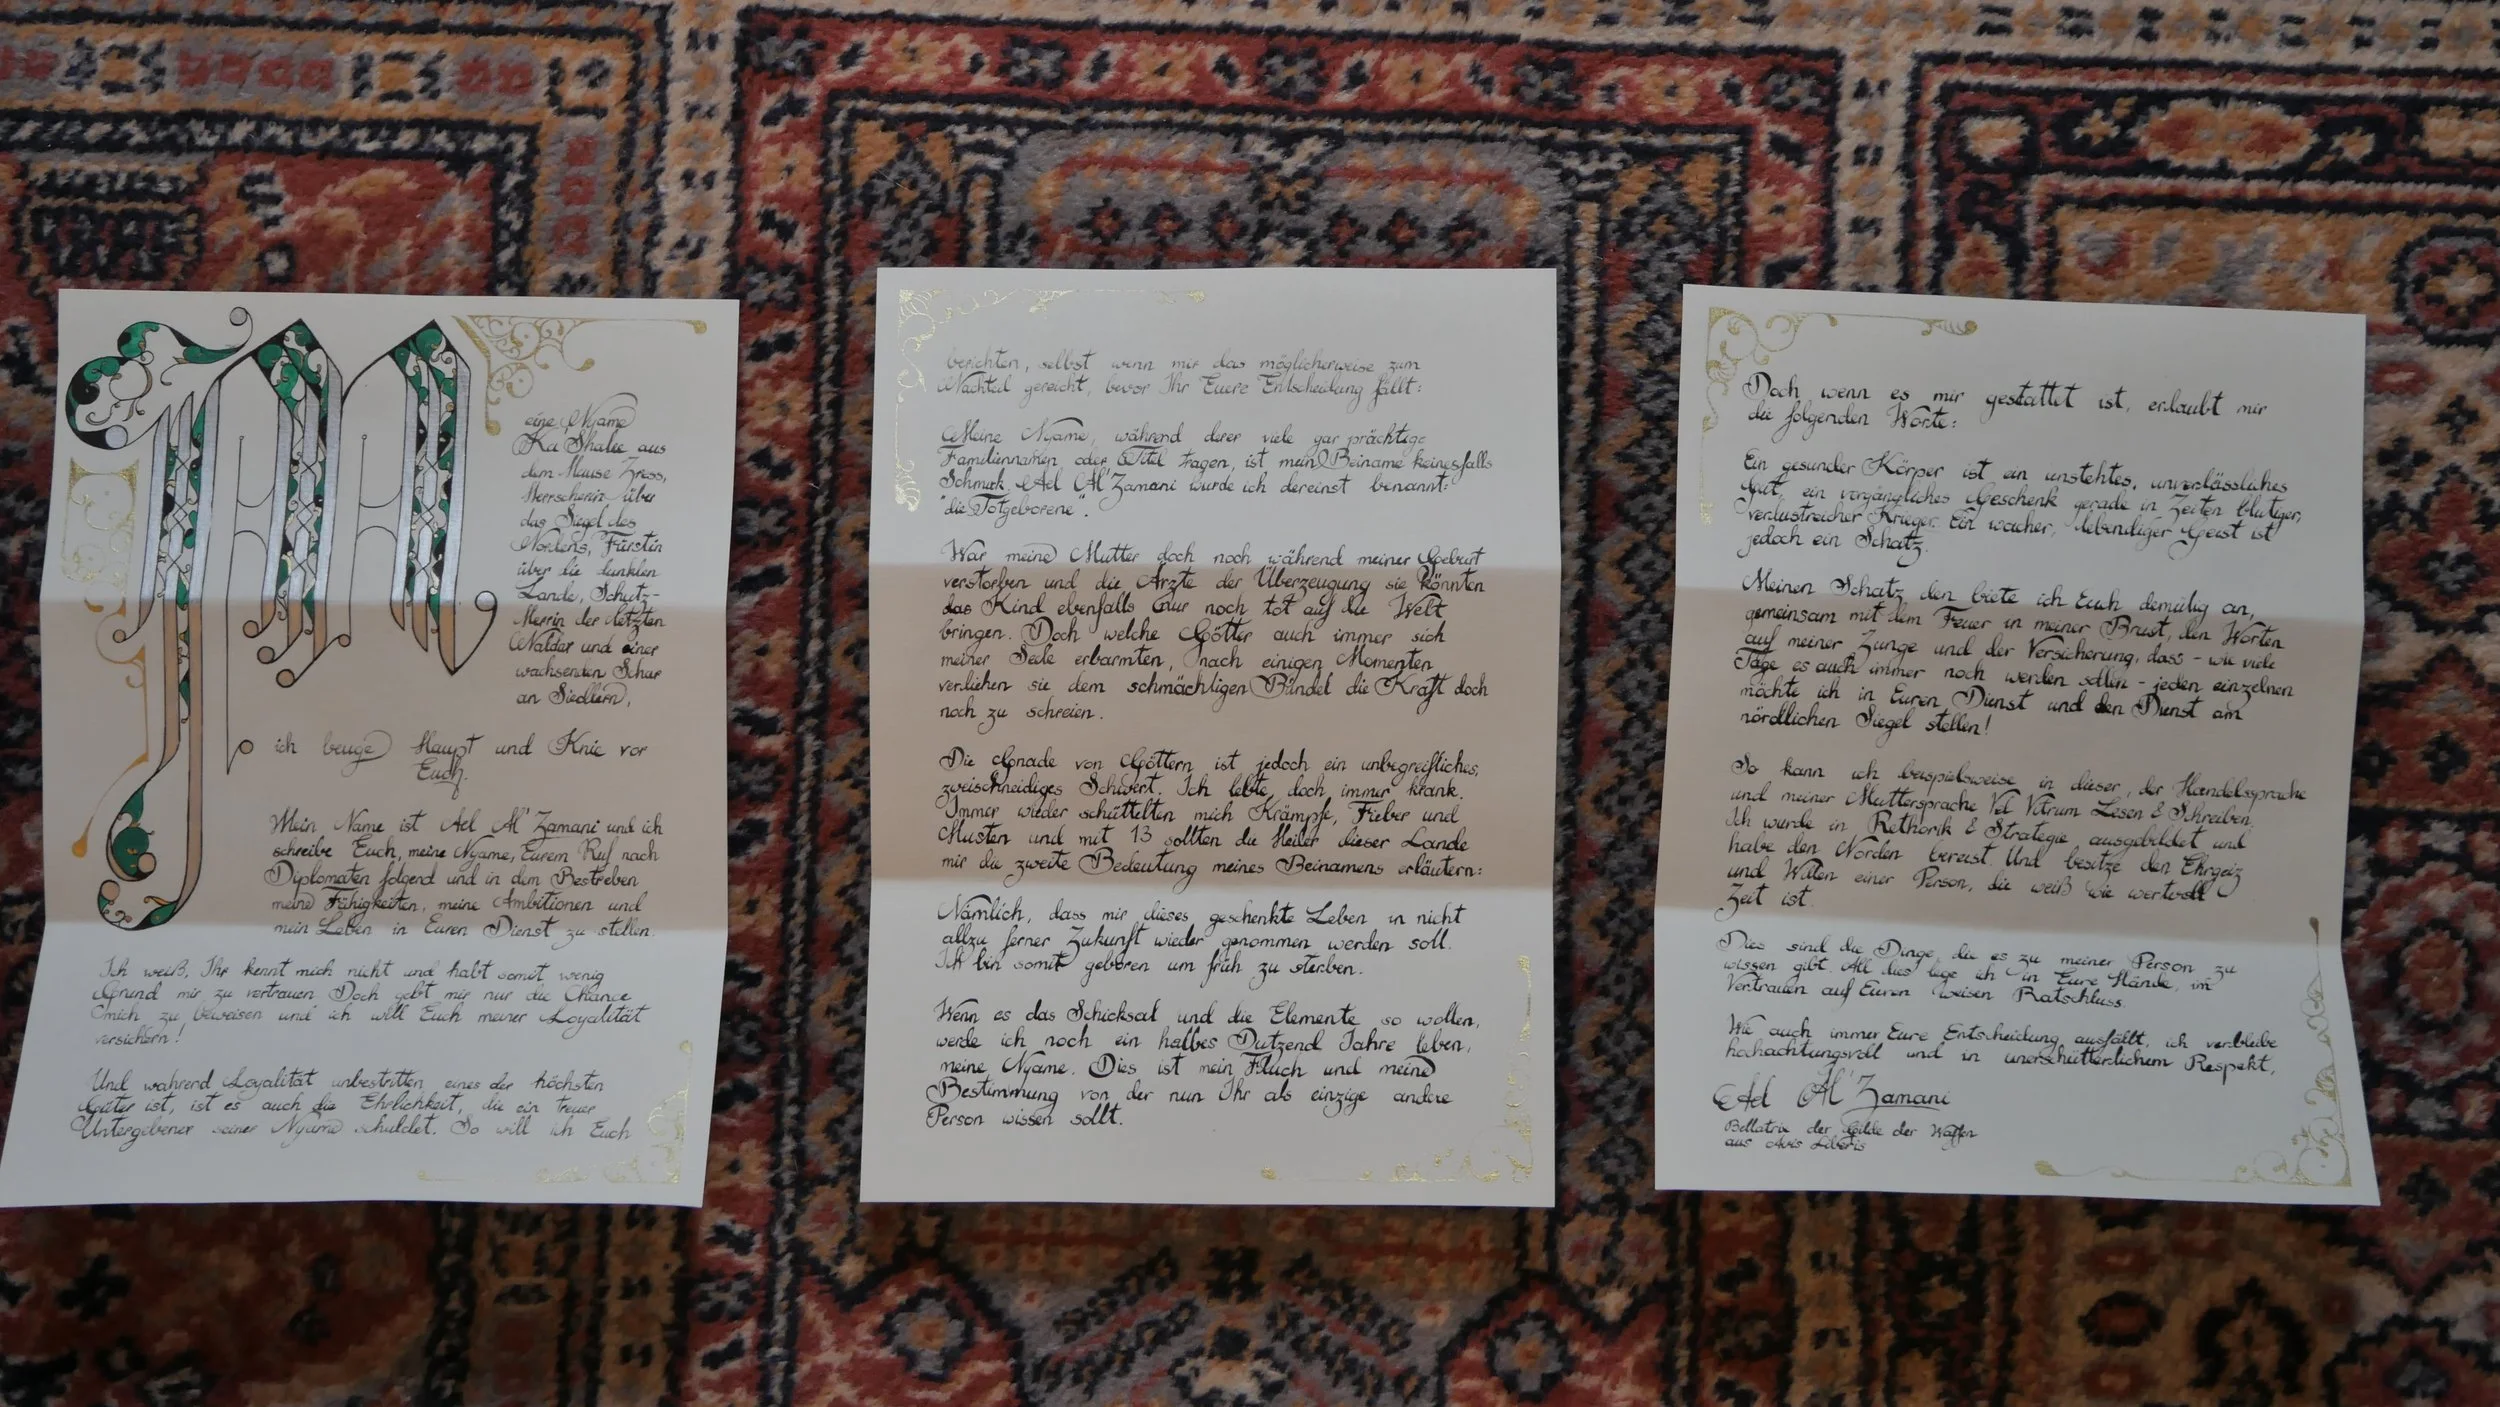 M
eine Nyame
Ka'Shalee aus
dem Hause Zress,
Herrscherin über
das Siegel des
Nordens, Fürstin
über die dunklen
Lande, Schutz-
Herrin der letzten
Wälder und einer
wachsenden Schar
an Siedlern,
ich beuge Haupt und Knie vor
Euch.
Mein Name ist Ael Al'Zamani und ich
schreibe Euch, meine Nyame, Eurem Ruf nach
Diplomaten folgend und in dem Bestreben
meine Fähigkeiten, meine Ambitionen und
mein Leben in Euren Dienst zu stellen.
Ich weiß, Ihr kennt mich nicht und habt somit wenig
Grund mir zu vertrauen. Doch gebt mir nur die Chance
mich zu beweisen und ich will Euch meiner Loyalität
versichern!
Und während Loyalität unbestritten eines der höchsten
Güter ist, ist es auch die Ehrlichkeit, die ein treuer
Untergebener seiner Nyame schuldet. So will ich Euch
berichten, selbst wenn mir das möglicherweise zum
Nachteil gereicht, bevor Ihr Euere Entscheidung fällt:
Meine Nyame, während derer viele gar prächtige
Familiennamen oder Titel tragen, ist mein Beiname keinesfalls
Schmuck. Ael Al'Zamani wurde ich dereinst benannt:
"die Totgeborene".
War meine Mutter doch noch während meiner Geburt
verstorben und die Ärzte der Überzeugung sie könnten
das Kind ebenfalls nur noch tot auf die Welt
bringen. Doch welche Götter auch immer sich
meiner Seele erbarmten, nach einigen Momenten
verliehen sie dem schmächtigen Bündel die Kraft doch
noch zu schreien.
Die Gnade von Göttern ist jedoch ein unbegreifliches,
zweischneidiges Schwert. Ich lebte, doch immer krank.
Immer wieder schüttelten mich Krämpfe, Fieber und
Husten und mit 13 sollten die Heiler dieser Lande
mir die zweite Bedeutung meines Beinamens erläutern:
Nämlich, dass mir dieses geschenkte Leben in nicht
allzu ferner Zukunft wieder genommen werden soll.
Ich bin somit geboren um früh zu sterben.
Wenn es das Schicksal und die Elemente so wollen,
werde ich noch ein halbes Dutzend Jahre leben,
meine Nyame. Dies ist mein Fluch und meine
Bestimmung von der nun Ihr als einzige andere
Person wissen sollt.
Doch wenn es mir gestattet ist, erlaubt mir
die folgenden Worte:
Ein gesunder Körper ist ein unstehtes, unverlässliches
Gut, ein vergängliches Geschenk gerade in Zeiten blutiger,
verlustreicher Krieger. Ein wacher, lebendiger Geist ist
jedoch ein Schatz.
Meinen Schatz den biete ich Euch demütig an,
gemeinsam mit dem Feuer in meiner Brust, den Worten
auf meiner Zunge und der Versicherung, dass - wie viele
Tage es auch immer noch werden sollen - jeden einzelnen
möchte ich in Euren Dienst und den Dienst am
nördlichen Siegel stellen!
So kann ich beispielsweise in dieser, der Handelssprache
und meiner Muttersprache Vel Vitrum Lesen & Schreiben.
Ich wurde in Rethorik & Strategie ausgebildet und
habe den Norden bereist. Und besitze den Ehrgeiz
und Willen einer Person, die weiß wie wertvoll
Zeit ist.
Dies sind die Dinge, die es zu meiner Person zu
wissen gibt. All dies lege ich in Eure Hände, im
Vertrauen auf Euren weisen Ratschluss.
Wie auch immer Eure Entscheidung ausfällt, ich verbleibe
hochachtungsvoll und in unerschütterlichem Respekt,
Ael Al'Zamani
Bellatrix der Gilde der Waffen
aus Avis Liberis